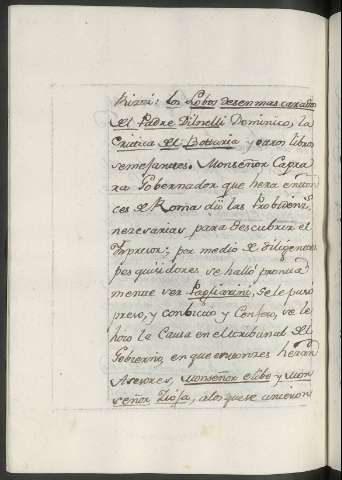 los Lobos desenmascarados
del Padre Dilnelli Dominico, la
Critica de Botturia y otros libros
semejantes. Monseñor Capra
ra Gobernador que hera enton
ces de Roma dió las Probidenz.
necesarias para descubrir el
Impresor; por medio de diligentes
pesquisidores se halló pronta
mente ser Pagliarini, se le puso
preso, y conbicto y Confeso, se le
hizo la Causa en el tribunal del
Gobierno, en que entonces heran
Asesores, Monseñor y Mon
señor Riosa, a los que se unieron